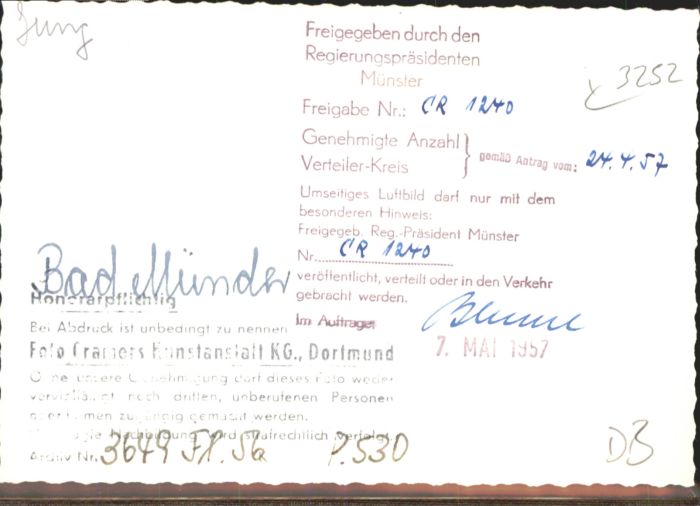 Jung
Freigegeben durch den
Regierungspräsidenten
Münster
3252
Freigabe Nr.: CR 1240
Genehmigte Anzahl
Verteiler-Kreis
gemäß Antrag vom: 24.4.57
Umseitiges Luftbild darf nur mit dem
besonderen Hinweis:
Freigegeb. Reg.-Präsident Münster
Nr. CR 1240
veröffentlicht, verteilt oder in den Verkehr
gebracht werden.
Im Auftrage:
7. MAI 1957
Bad Münder
Honorarpflichtig
Bei Abdruck ist unbedingt zu nennen
Foto Cramers Kunstanstalt KG., Dortmund
Ohne unsere Genehmigung darf dieses Foto weder
vervielfältigt noch dritten, unberufenen Personen
oder Firmen zugängig gemacht werden.
Nachbildung wird strafrechtlich verfolgt.
Archiv Nr. 3649 Fl. 56 P.530
DB